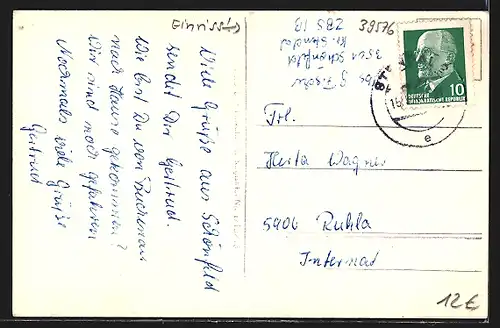 Einriss
39576
ZBS 1B
3501 Schönfeld
Kr. Stendal
Viele Grüße aus Schönfeld
sendet Dir Gertrud.
Wie bist Du von Buchenau
nach Hause gekommen?
Wir sind noch gefahren
Nochmals viele Grüße
Gertrud
10
DEUTSCHE
DEMOKRATISCHE REPUBLIK
e
Frl.
Herta Wagner
5906 Ruhla
Internat
12€